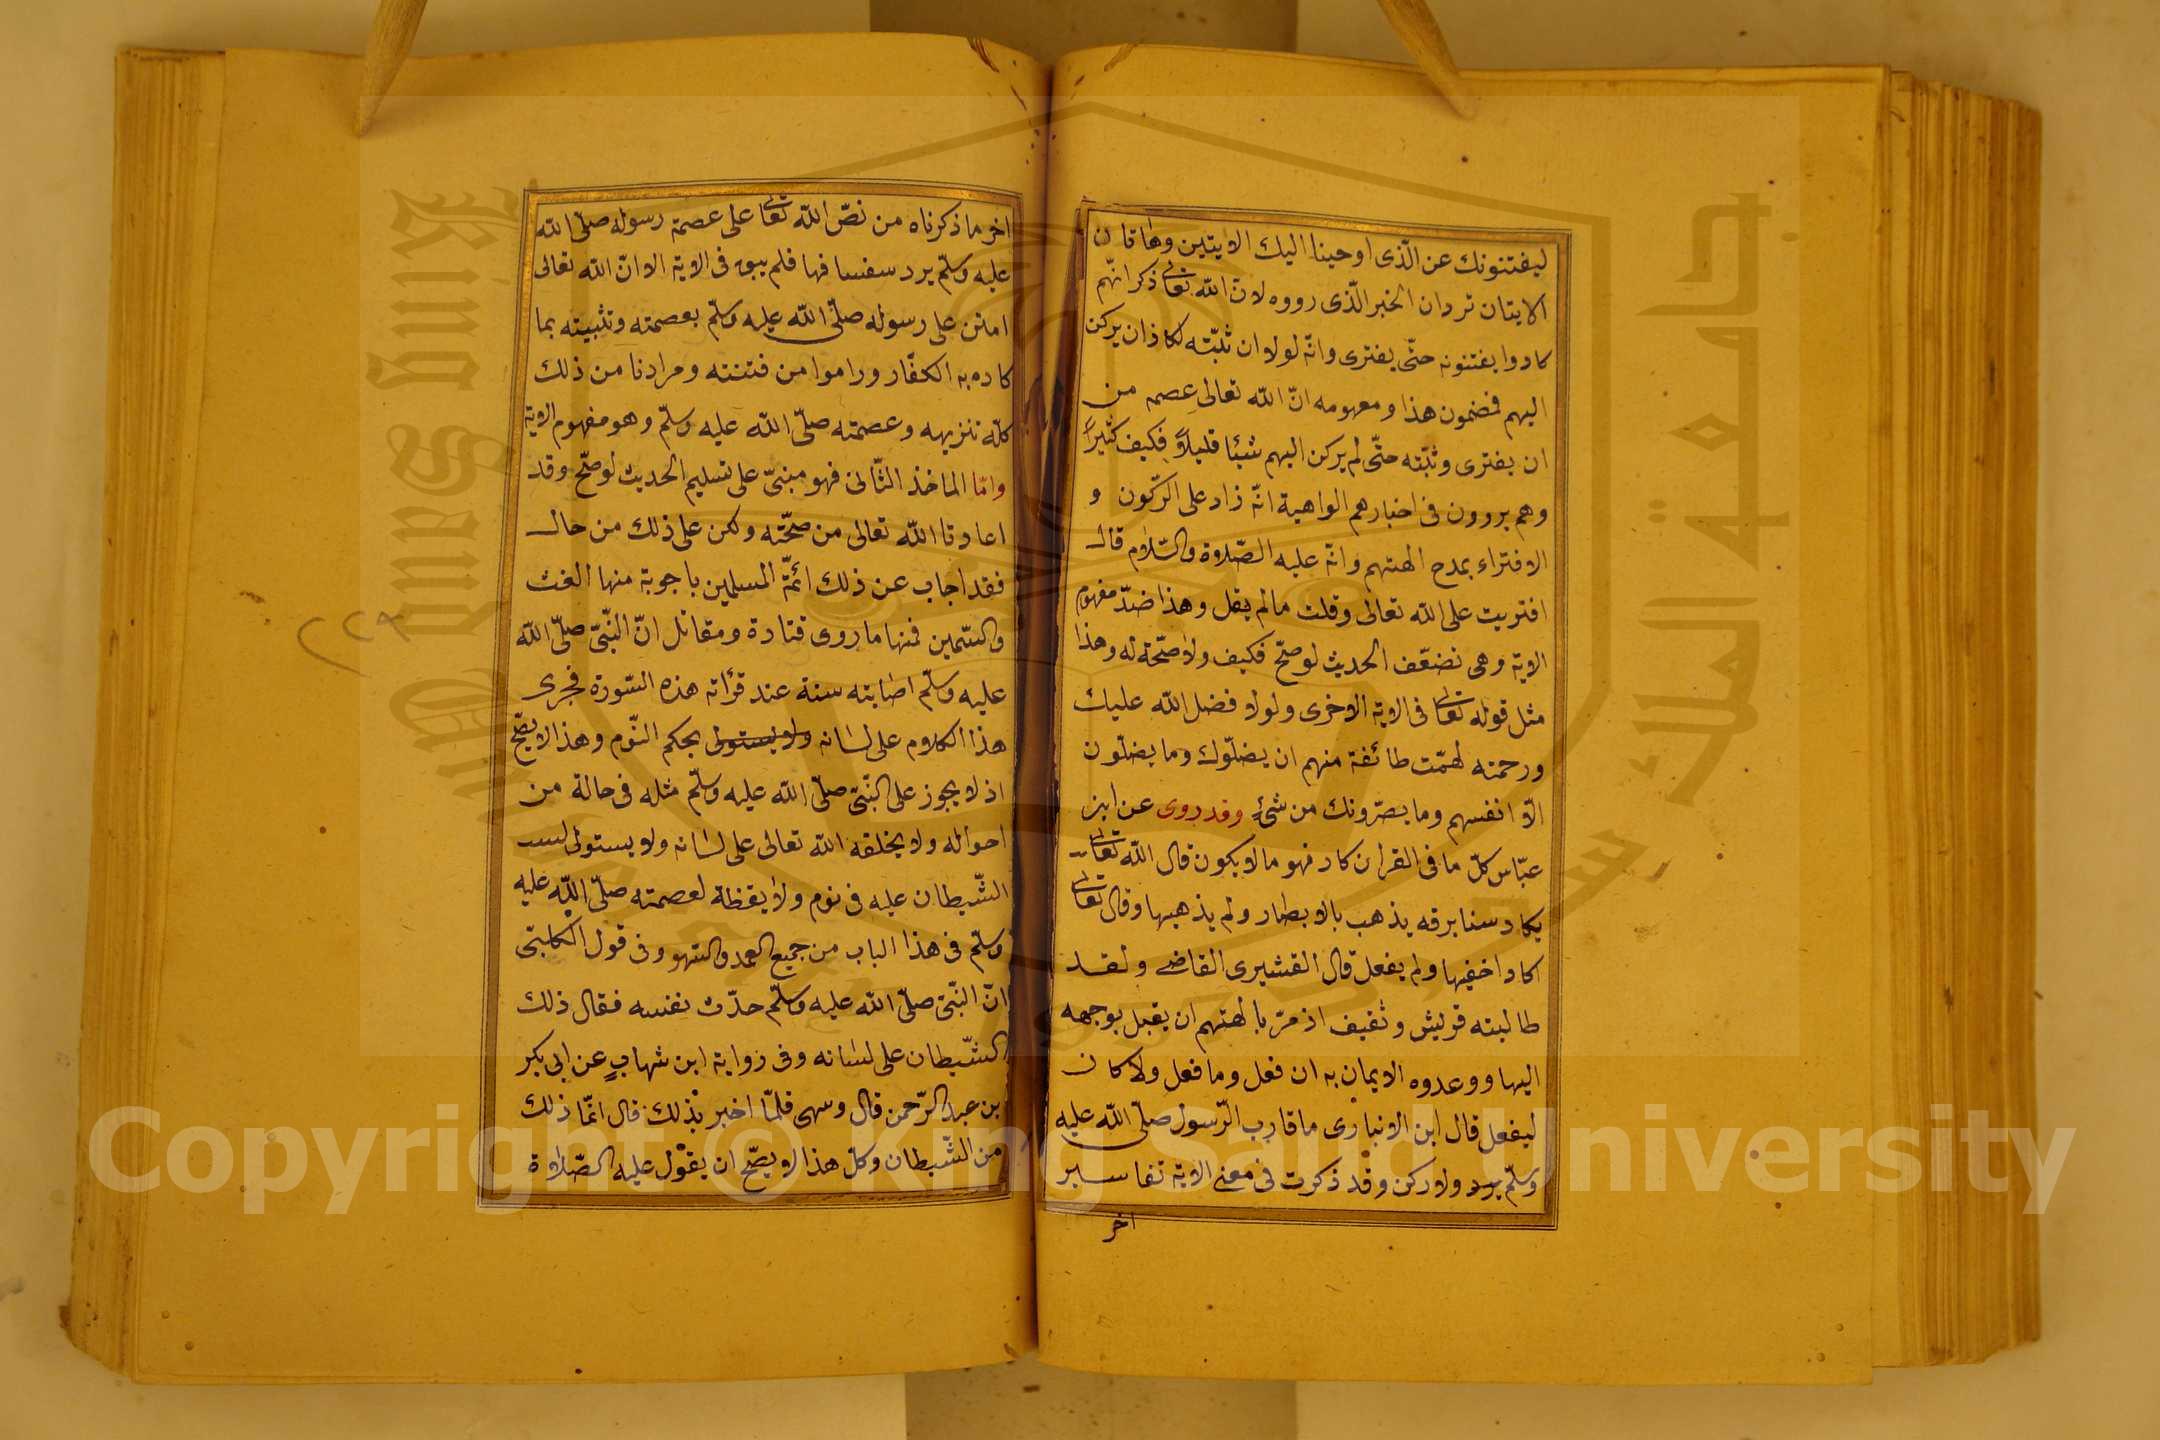 ليفتنونك عن الّذى اوحينا اليك الايتين وهاتان
الايتان تردان الخبر الّذى رووه لانّ الله تعالى ذكر انّهم
كادوا يفتنونه حتّى يفترى وانّه لولا ان ثبّته لكاد ان يركن
اليهم فمضمون هذا ومفهومه انّ الله تعالى عصمه من
ان يفترى وثبّته حتّى لم يركن اليهم شيئا قليلاً فكيف كثيراً
وهم يروون فى اخبارهم الواهية انّه زاد على الرّكون و
الافتراء بمدح الهتهم وانّه عليه الصّلاة والسّلام قال
افتريت على الله تعالى وقلت مالم يقل وهذا ضدّ مفهوم
الاية وهى تضعّف الحديث لوصحّ فكيف ولا صحّة له وهذا
مثل قوله تعالى فى الاية الاخرى ولولا فضل الله عليك
ورحمته لهمّت طائفة منهم ان يضلّوك وما يضلّون
الّا انفسهم وما يضرّونك من شئ وقد روى عن ابن
عبّاس كلّ ما فى القران كاد فهو مالا يكون قال الله تعالى
يكاد سنا برقه يذهب بالابصار ولم يذهبها وقال تعالى
اكاد اخفيها ولم يفعل قال القشيرى القاضى ولقد
طالبته قريش وثقيف اذ مرّ بالهتهم ان يقبل بوجهه
اليها ووعدوه الايمان به ان فعل وما فعل ولا كان
ليفعل قال ابن الانبارى ما قارب الرّسول صلّى الله عليه
وسلّم ولا ركن وقد ذكرت فى معنى الاية تفاسير
اخر
اخر ما ذكرناه من نصّ الله تعالى على عصمة رسوله صلّى الله
عليه وسلّم يرد سفسا فها فلم يبق فى الاية الا انّ الله تعالى
امتن على رسوله صلّى الله عليه وسلّم بعصمته وتثبيته بما
كاده به الكفّار وراموا من فتنته ومرادنا من ذلك
كلّه تنزيهه وعصمته صلّى الله عليه وسلّم وهو مفهوم الاية
وامّا الماخذ الثّانى فهو مبنىّ على تسليم الحديث لوصحّ وقد
اعاذنا الله تعالى من صحّته ولكن على ذلك من حال
فقد اجاب عن ذلك ائمّة المسلمين باجوبة منها الغث
والسّمين فمنها ما روى قتادة ومقاتل انّ النّبىّ صلّى الله
عليه وسلّم اصابته سنة عند قرأته هذه السّورة فجرى
هذا الكلام على لسانه ولا يستولى بحكم النّوم وهذا لا يصحّ
اذ لا يجوز على النّبىّ صلّى الله عليه وسلّم مثله فى حالة من
احواله ولا يخلقه الله تعالى على لسانه ولا يستولى
الشّيطان عليه فى نوم ولا يقظة لعصمته صلّى الله عليه
وسلّم فى هذا الباب من جميع العمد والسّهو وفى قول الكلبىّ
انّ النّبىّ صلّى الله عليه وسلّم حدّث نفسه فقال ذلك
الشّيطان على لسانه وفى رواية ابن شهابٍ عن ابى بكر
بن عبد الرّحمن قال وسهى فلمّا اخبر بذلك قال انّما ذلك
من الشّيطان وكلّ هذا لا يصّح ان يقول عليه الصّلاة
٢٢٩
King Saud University
جامعة الملك سعود
Copyright © King Saud University